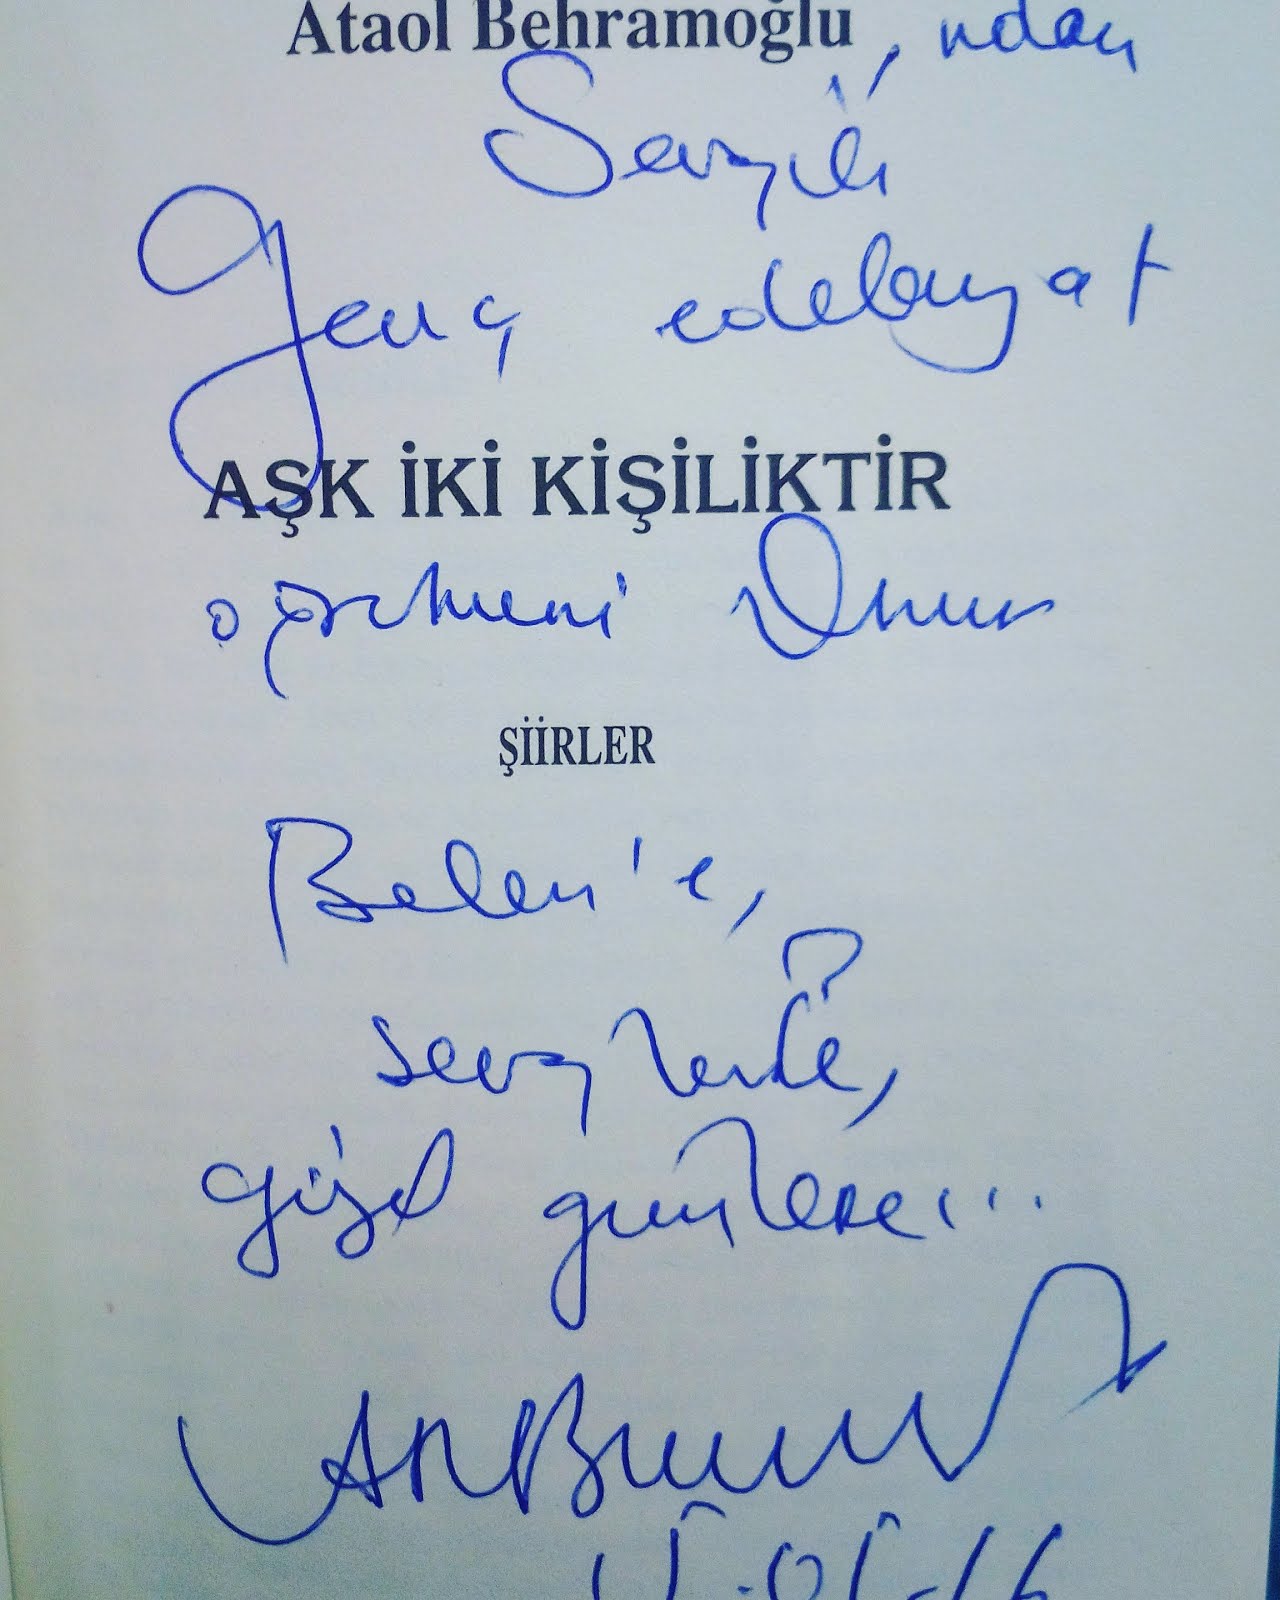 Ataol Behramoğlu'ndan
Sevgili
Genç edebiyat
AŞK İKİ KİŞİLİKTİR
öğretmeni Onur
ŞİİRLER
Belen'e,
sevgilerle,
güzel günlere...